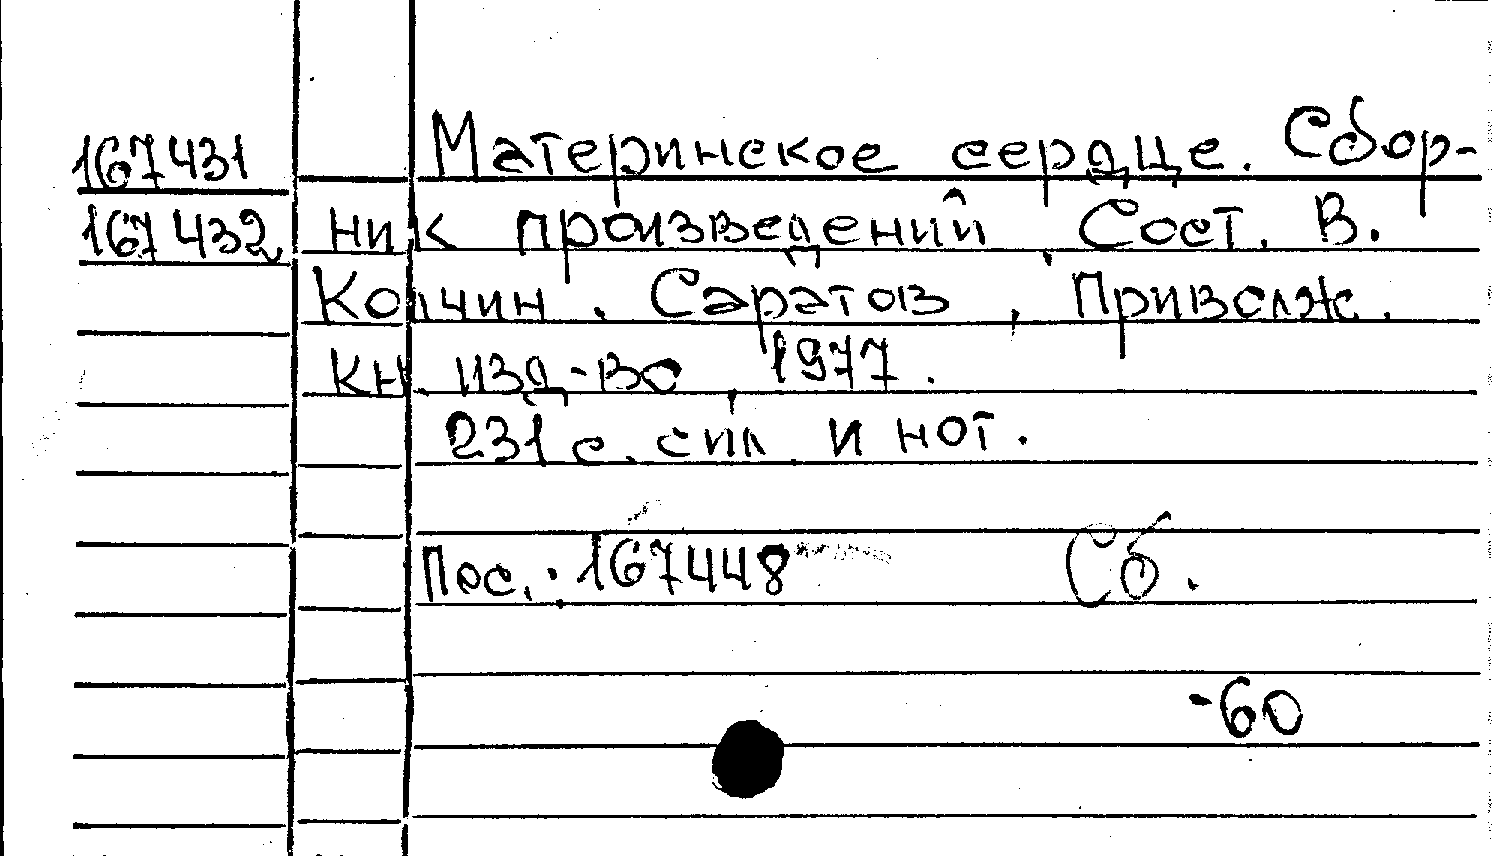 167431 Материнское сердце. Сбор-
167432 ник произведений. Сост. В.
Колчин. Саратов, Приволж.
кн. изд-во, 1977.
231 с. с ил. и нот.
Пос. 167448 Сб.
-60